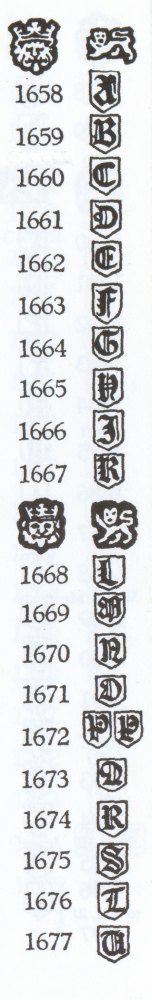 1658 A
1659 B
1660 C
1661 D
1662 E
1663 F
1664 G
1665 H
1666 I
1667 K
1668 L
1669 M
1670 N
1671 O
1672 P P
1673 Q
1674 R
1675 S
1676 T
1677 U